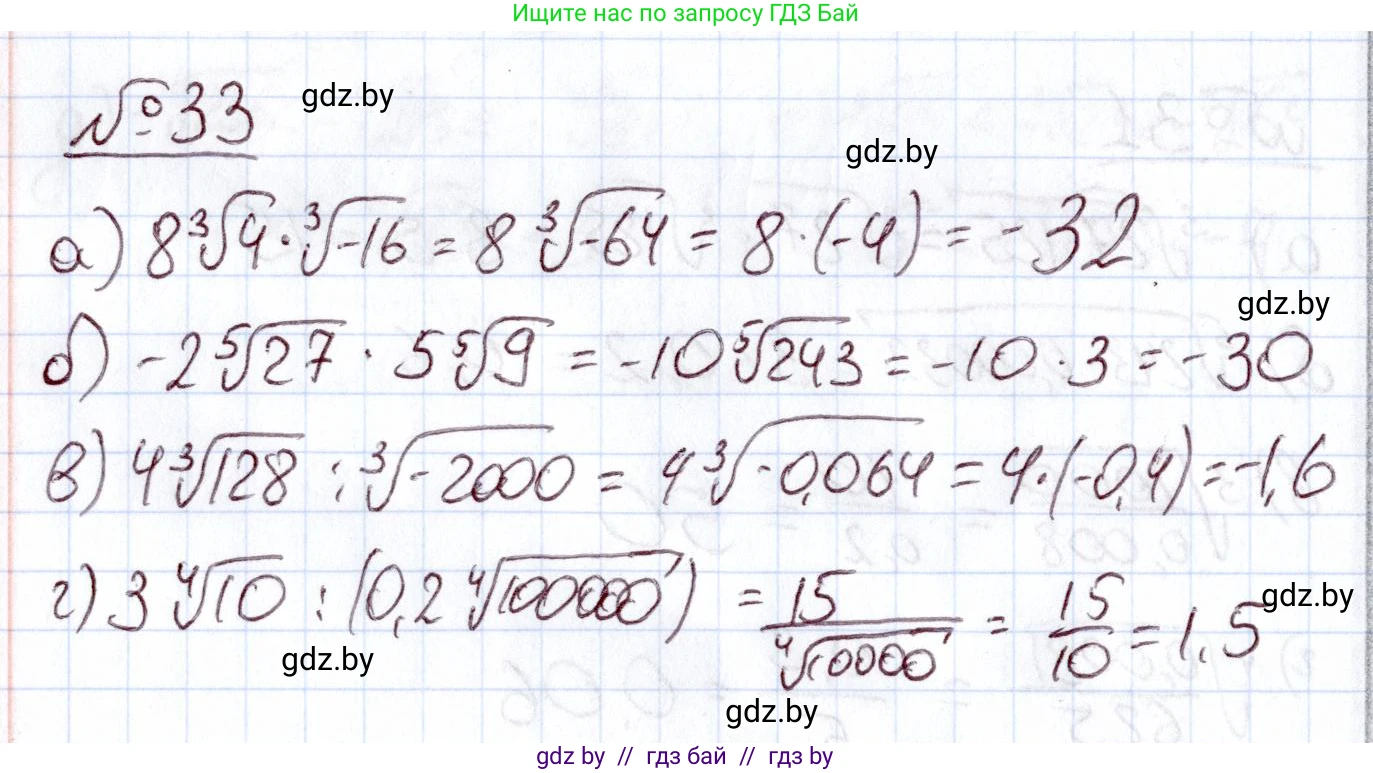 Ищите нас по запросу ГДЗ Бай
№33
gdz.by
gdz.by
а) 8∛4 · ∛-16 = 8 ∛-64 = 8 · (-4) = -32
gdz.by
б) -2 ⁵√27 · 5 ⁵√9 = -10 ⁵√243 = -10 · 3 = -30
в) 4∛128 : ∛-2000 = 4∛-0,064 = 4 · (-0,4) = -1,6
г) 3 ⁴√10 : (0,2 ⁴√100000) = 15/⁴√10000 = 15/10 = 1,5
gdz.by
gdz.by
gdz.by
gdz by // гдз бай // гдз by